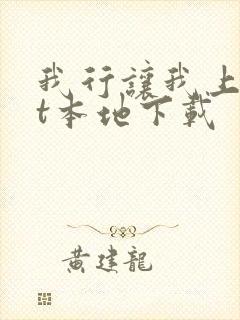 我行讓我上
t本地下載
黄建龍